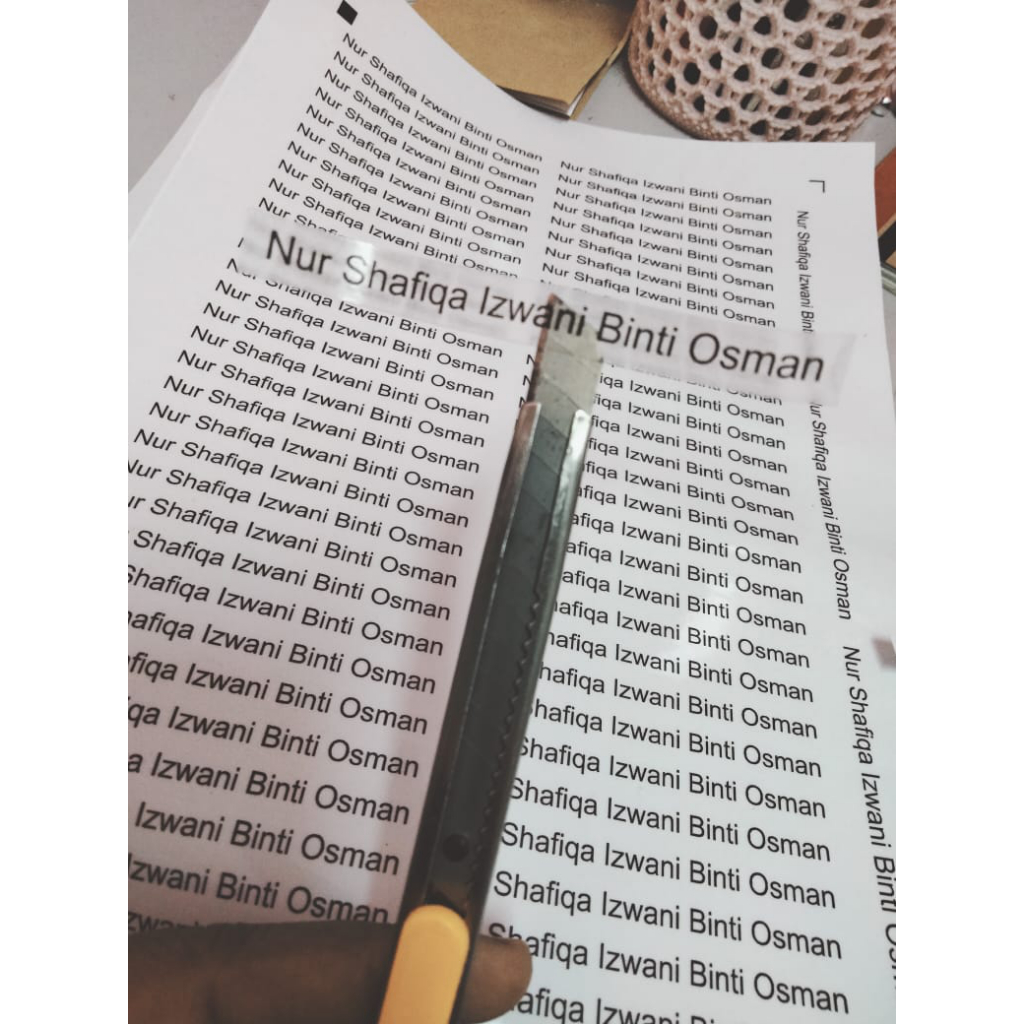 Nur Shafiqa Izwani Binti Osman
Nur Shafiqa Izwani Binti Osman
Nur Shafiqa Izwani Binti Osman
Nur Shafiqa Izwani Binti Osman
Nur Shafiqa Izwani Binti Osman
Nur Shafiqa Izwani Binti Osman
Nur Shafiqa Izwani Binti Osman
Nur Shafiqa Izwani Binti Osman
Nur Shafiqa Izwani Binti Osman
Nur
Nur Shafiqa Izwani Binti Osman
Shafiqa Izwani Binti Osman
Nur Shafiqa Izwani Binti Osman
Nur Shafiqa Izwani Binti Osman
Nur Shafiqa Izwani Binti Osman
Nur Shafiqa Izwani Binti Osman
Nur Shafiqa Izwani Binti Osman
Nur Shafiqa Izwani Binti Osman
Nur Shafiqa Izwani Binti Osman
Nur Shafiqa Izwani Binti Osman
Shafiqa Izwani Binti Osman
Shafiqa Izwani Binti Osman
Shafiqa Izwani Binti Osman
Izwani Binti Osman
Izwani Binti Osman
Izwani Binti Osman
Izwani Binti Osman
Izwani Binti Osman
Izwani Binti Osman
Nur Shafiqa Izwani Binti Osman
Nur Shafiqa Izwani Binti Osman
Nur Shafiqa Izwani Binti Osman
Nur Shafiqa Izwani Binti Osman
Nur Shafiqa Izwani Binti Osman
Nur Shafiqa Izwani Binti Osman
Nur Shafiqa Izwani Binti Osman
Nur Shafiqa Izwani Binti Osman
Izwani Binti Osman
Izwani Binti Osman
Izwani Binti Osman
Izwani Binti Osman
Izwani Binti Osman
Izwani Binti Osman
Izwani Binti Osman
Izwani Binti Osman
Izwani Binti Osman
Izwani Binti Osman
Izwani Binti Osman
Izwani Binti Osman
Shafiqa Izwani Binti Osman
Shafiqa Izwani Binti Osman
Shafiqa Izwani Binti Osman
Shafiqa Izwani Binti Osman
Shafiqa Izwani Binti Osman
Izwani Binti Osman
Nur Shafiqa Izwani
Shafiqa Izwani Binti Osman
Nur Shafiqa Izwani Binti